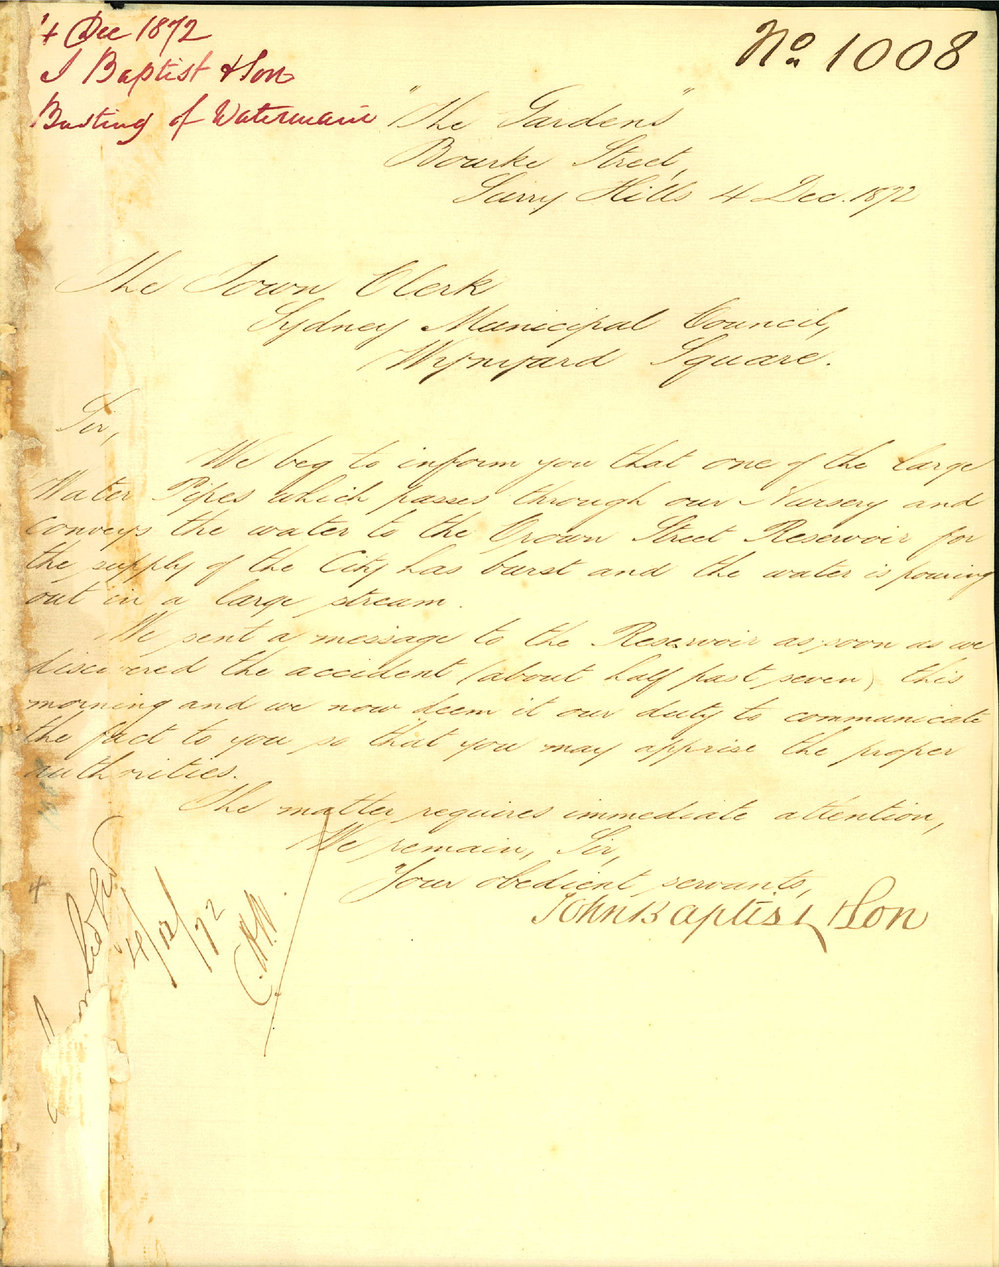 4 Dec 1872
J Baptist & Son
Busting of Watermain
No. 1008
"The Gardens"
Bourke Street,
Surry Hills 4 Dec. 1872
The Town Clerk
Sydney Municipal Council,
Wynyard Square.
Sir,
We beg to inform you that one of the large
Water Pipes which passes through our Nursery and
conveys the water to the Crown Street Reservoir for
the supply of the City has burst and the water is pouring
out in a large stream.
We sent a message to the Reservoir as soon as we
discovered the accident (about half past seven) this
morning and we now deem it our duty to communicate
the fact to you so that you may apprise the proper
authorities.
The matter requires immediate attention,
We remain, Sir,
Your obedient servants,
John Baptist & Son
4
4/12/72